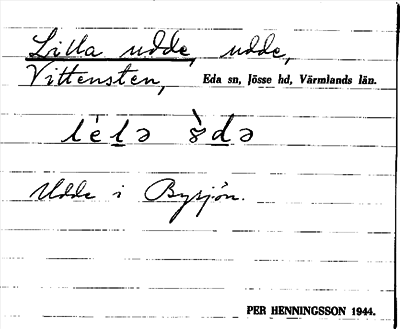 Lilla udde, udde,
Vittensten, Eda sn, Jösse hd, Värmlands län.
Udde i Bysjön.
PER HENNINGSSON 1944.